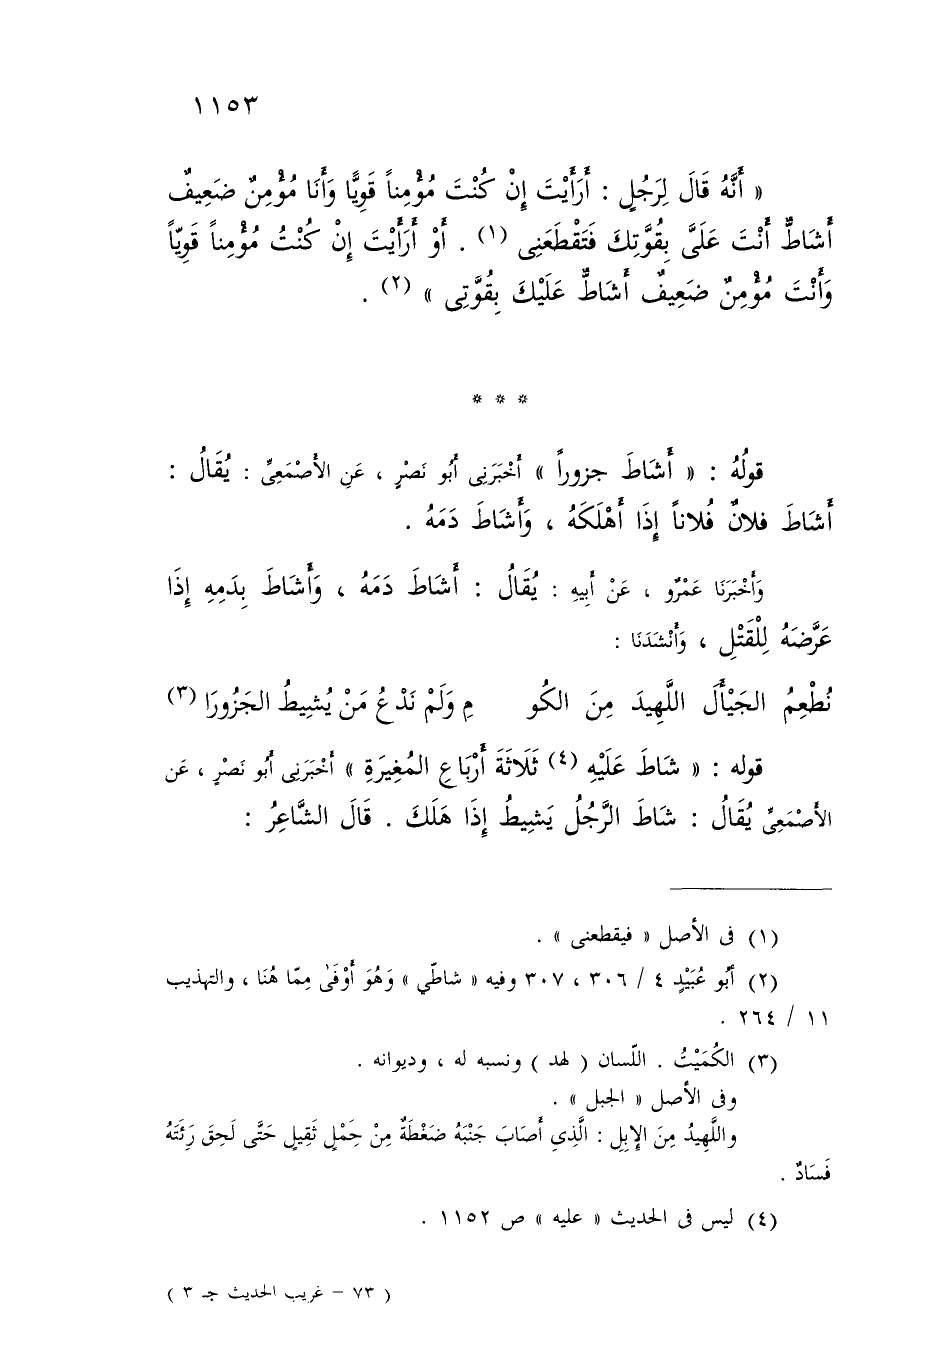 ١١٥٣
« أَنَّهُ قَالَ لِرَجُلٍ : أَرَأَيْتَ إِنْ كُنْتَ مُؤْمِناً قَوِيًّا وَأَنَا مُؤْمِنٌ ضَعِيفٌ
أَشَاطٌّ أَنْتَ عَلَىَّ بِقُوَّتِكَ فَتَقْطَعَنِى (١) . أَوْ أَرَأَيْتَ إِنْ كُنْتُ مُؤْمِناً قَوِيّاً
وَأَنْتَ مُؤْمِنٌ ضَعِيفٌ أَشَاطٌّ عَلَيْكَ بِقُوَّتِى » (٢) .
* * *
قولُهُ : « أَشَاطَ جزوراً » أَخْبَرَنِى أَبُو نَصْرٍ ، عَنِ الأَصْمَعِىِّ : يُقَالُ :
أَشَاطَ فلانٌ فُلاناً إِذَا أَهْلَكَهُ ، وَأَشَاطَ دَمَهُ .
وَأَخْبَرَنَا عَمْرٌو ، عَنْ أَبِيهِ : يُقَالُ : أَشَاطَ دَمَهُ ، وَأَشَاطَ بِدَمِهِ إِذَا
عَرَّضَهُ لِلْقَتْلِ ، وَأَنْشَدَنَا :
نُطْعِمُ الجَيْأَلَ اللَّهِيدَ مِنَ الكُو مِ وَلَمْ نَدْعُ مَنْ يُشِيطُ الجَزُورَا (٣)
قوله : « شَاطَ عَلَيْهِ (٤) ثَلَاثَةَ أَرْبَاعِ المُغِيرَةِ » أَخْبَرَنِى أَبُو نَصْرٍ ، عَن
الأَصْمَعِىِّ يُقَالُ : شَاطَ الرَّجُلُ يَشِيطُ إِذَا هَلَكَ . قَالَ الشَّاعِرُ :
(١) فى الأصل « فيقطعنى » .
(٢) أَبُو عُبَيْدٍ ٤ / ٣٠٦ ، ٣٠٧ وفيه « شاطّي » وَهُوَ أَوْفَىٰ مِمّا هُنَا ، والتهذيب
١١ / ٢٦٤ .
(٣) الكُمَيْتُ . اللّسان ( لهد ) ونسبه له ، وديوانه .
وفى الأصل « الجبل » .
واللَّهِيدُ مِنَ الإِبِلِ : الَّذِي أَصَابَ جَنْبَهُ ضَغْطَةٌ مِنْ حِمْلٍ ثَقِيلٍ حَتَّى لَحِقَ رَئَتَهُ
فَسَادٌ .
(٤) ليس فى الحديث « عليه » ص ١١٥٢ .
( ٧٣ – غريب الحديث جـ ٣ )